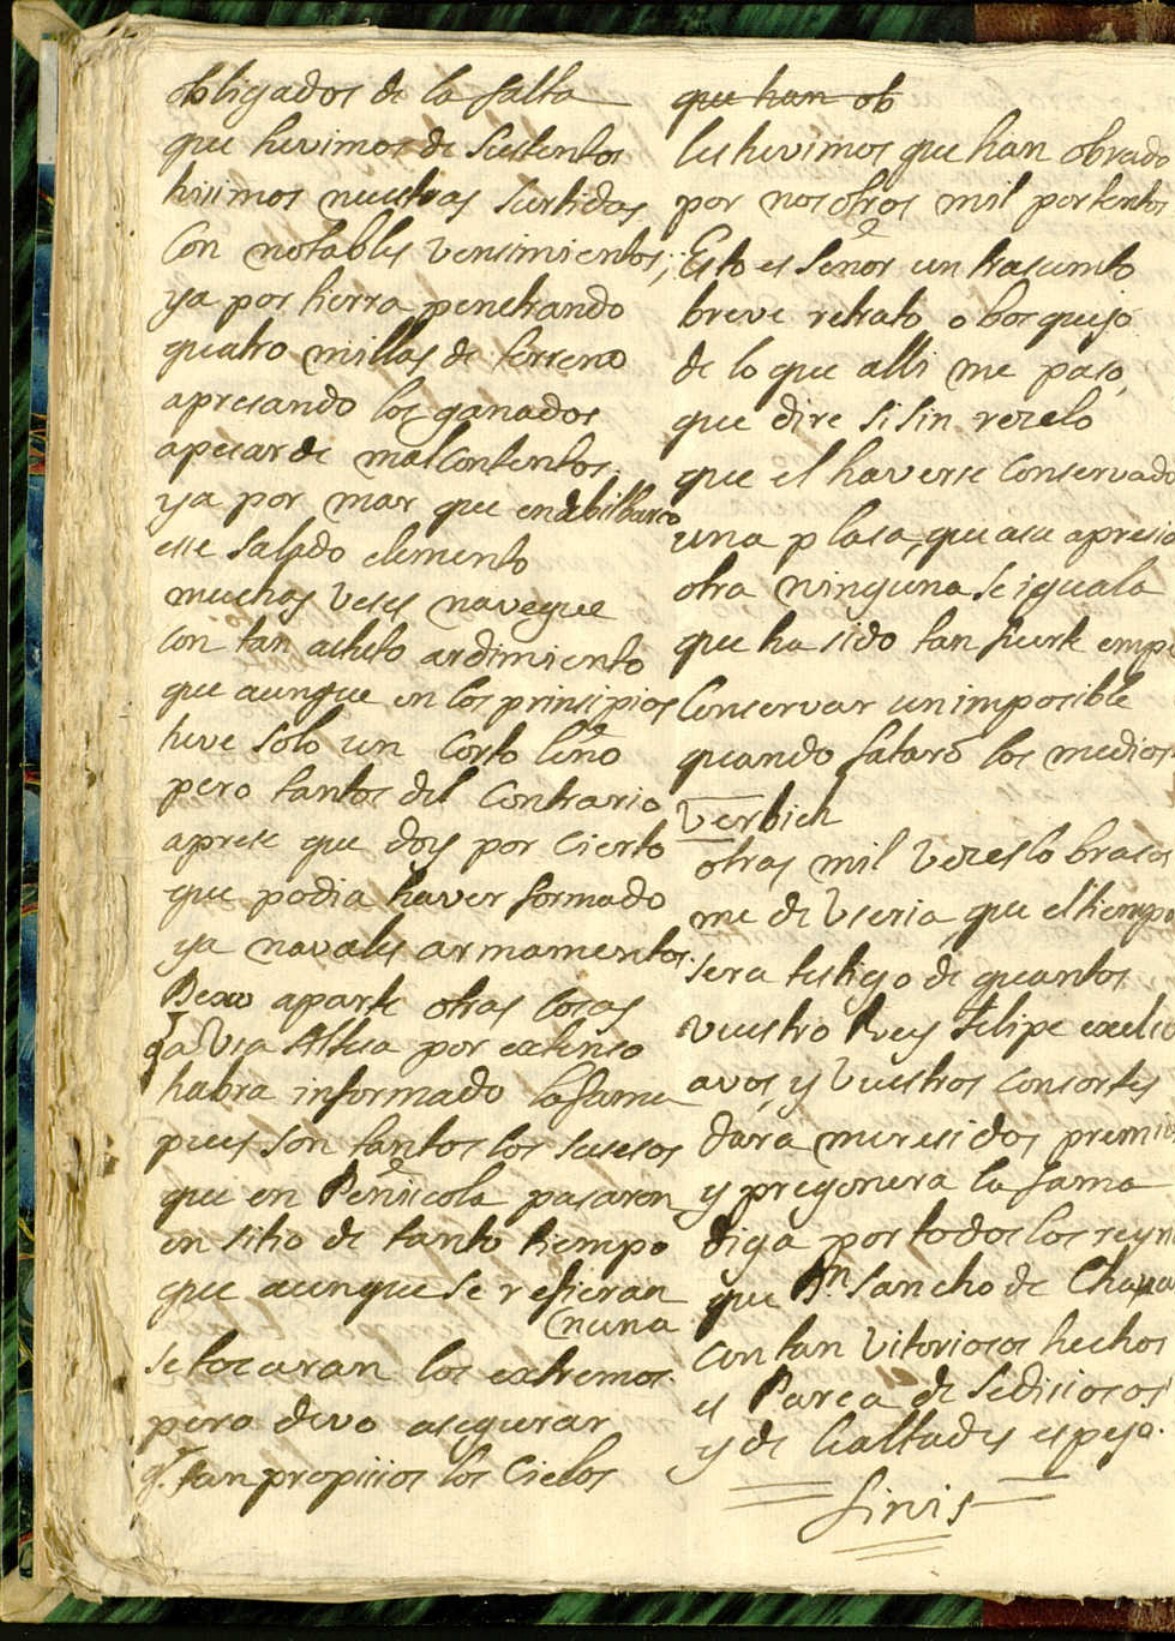 obligados de la falta
que tuvimos de sustentos
hisimos nuestras surtidas
con notables vensimientos;
ya por tierra penetrando
quatro millas de terreno
apresando los ganados
apesar de mal contentos.
ya por mar que en
ese salado elemento
muchas veses navegue
con tan ardimiento
que aunque en los prinsipios
tuve solo un corto leño
pero tantos del contrario
aprese que doy por cierto
que podia haver formado
ya navales armamentos.
Dexo aparte otras cosas
q a Vra Altesa por extenso
habra informado la fama
pues son tantos los susesos
que en Peñiscola pasaron
en sitio de tanto tiempo
que aunque se refieran
nunca
se tocaran los extremos.
pero devo asegurar
q. tan propisios los Cielos
que han ob
les tuvimos que han obrado
por nosotros mil portentos
Esto es Señor un trasumto
breve retrato o bosquejo
de lo que alli me paso,
que dire si sin rezelo
que el haverse conservado
una plasa, que a su
otra ninguna se iguala
que ha sido tan fuerte
Conservar un imposible
quando fataro los medios
Verbich
otras mil vezes lo brasos
me de Vseria que el tiempo
sera testigo de quantos
vuestro Rey Felipe
avos, y vuestros consortes
dara meresidos
y pregonera la fama
diga por todos los
que Dn. Sancho de
con tan vitoriosos hechos
es Parca de sedisiosos
y de lealtades espejo.
finis